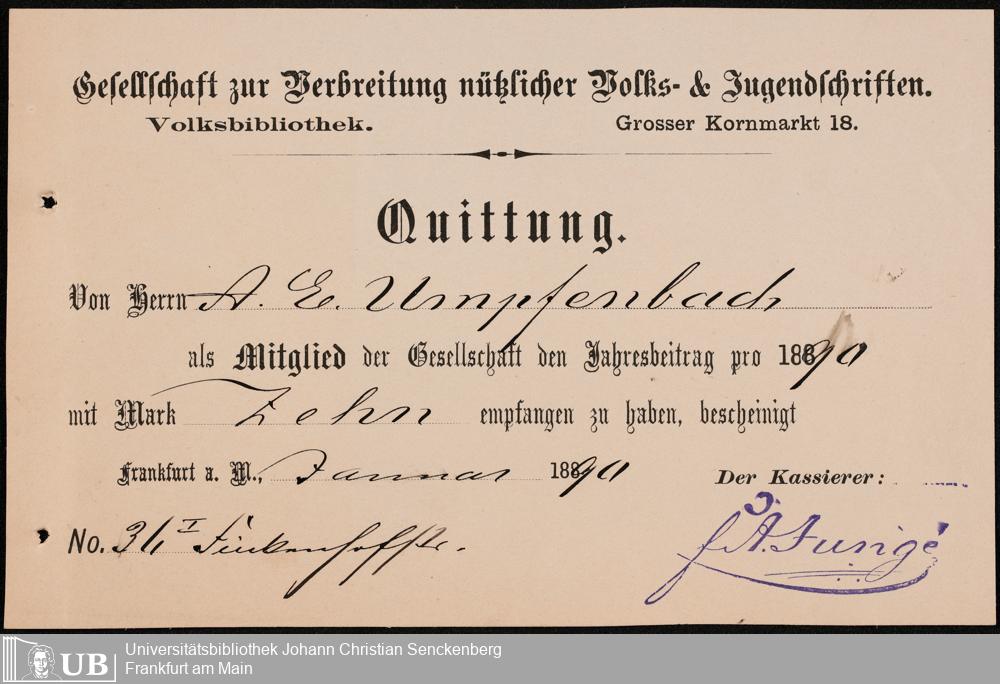 Gesellschaft zur Verbreitung nützlicher Volks- & Jugendschriften.
Volksbibliothek. Grosser Kornmarkt 18.
Quittung.
Von Herrn A. E. Umpfenbach
als Mitglied der Gesellschaft den Jahresbeitrag pro 1890
mit Mark Zehn empfangen zu haben, bescheinigt
Frankfurt a. M., Januar 1890 Der Kassierer:
No. 36 I Finkenhofstr.
A. Jungé
UB Universitätsbibliothek Johann Christian Senckenberg
Frankfurt am Main